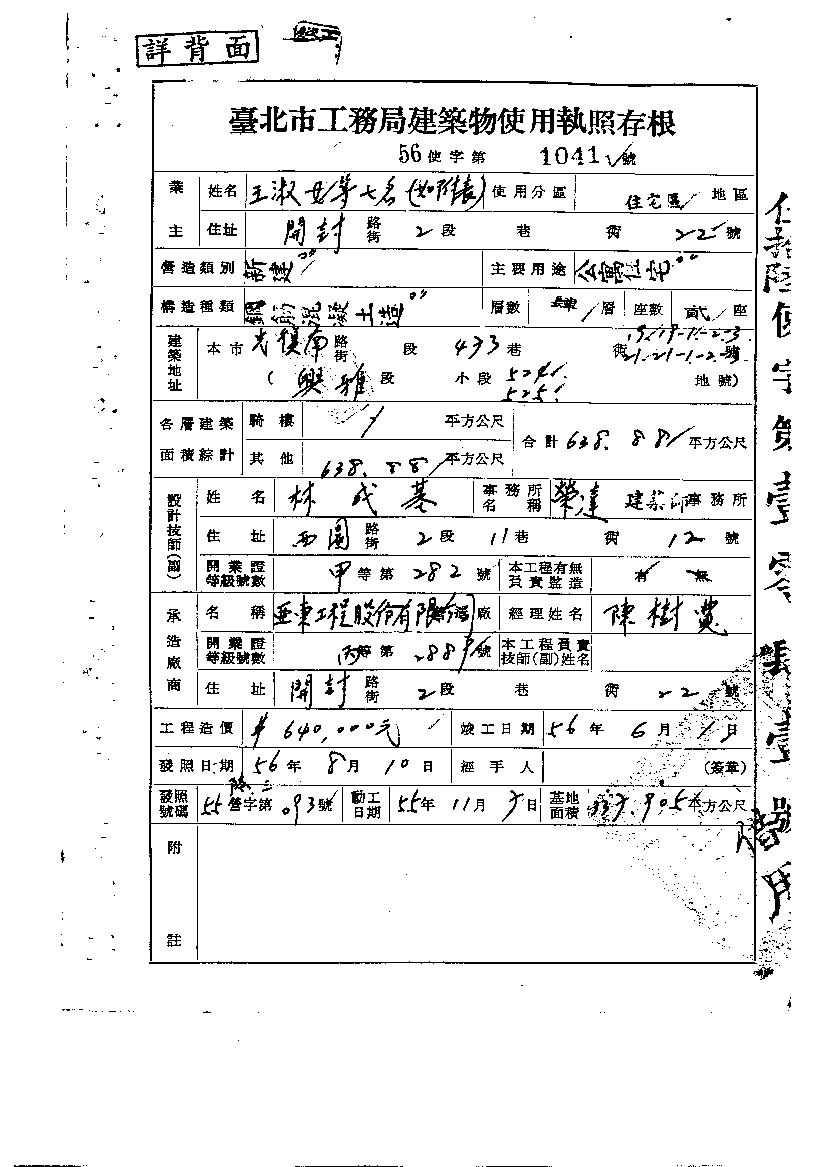 詳背面
臺北市工務局建築物使用執照存根
56使字第 1041 號
業主 姓名 王淑女等七名(如附表) 使用分區 住宅區 地區
住址 開封 路街 2 段 巷 衖 22 號
營造類別 新建 主要用途 公寓住宅
構造種類 鋼筋混凝土造 層數 肆 層 座數 貳 座
建築地址 本市 光復南 路街 段 433 巷 衖 19.19-1-2-3 21.21-1-2-3 號
( 興雅 段 小段 524 525 地號)
各層建築面積綜計 騎樓 平方公尺 合計 638.88 平方公尺
其他 638.88 平方公尺
設計技師(副) 姓名 林成基 事務所名稱 榮達 建築師事務所
住址 西園 路街 2 段 11 巷 衖 12 號
開業證等級號數 甲 等第 282 號 本工程有無負責監造 有 無
承造廠商 名稱 亞東工程股份有限 廠 經理姓名 陳樹
開業證等級號數 丙等第 號 本工程負責技師(副)姓名
住址 開封 路街 2 段 巷 衖 22 號
工程造價 $640,000元 竣工日期 56年 6月 1日
發照日期 56年 8月 10日 經手人 (簽章)
發照號碼 55營字第 093號 動工日期 55年 11月 日 基地面積 平方公尺
附註
使字第壹零肆壹號